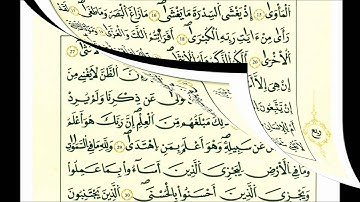 الْمَأْوَىٰ ١٥ إِذْ يَغْشَى السِّدْرَةَ مَا يَغْشَىٰ ١٦ مَا زَاغَ الْبَصَرُ وَمَا طَغَىٰ
رَأَىٰ مِنْ آيَاتِ رَبِّهِ الْكُبْرَىٰ ١٨ أَفَرَأَيْتُمُ اللَّاتَ وَالْعُزَّىٰ
الْأُخْرَىٰ ٢٠ أَلَكُمُ الذَّكَرُ وَلَهُ الْأُنثَىٰ
إِنْ هِيَ إِلَّا
الظَّنَّ لَا يُغْنِي مِنَ
إِن يَتَّبِعُونَ
تَوَلَّىٰ عَن ذِكْرِنَا وَلَمْ يُرِدْ
أَمْ لِلْإِنسَانِ
ربع
ذَٰلِكَ مَبْلَغُهُم مِّنَ الْعِلْمِ إِنَّ رَبَّكَ هُوَ أَعْلَمُ
عَن سَبِيلِهِ وَهُوَ أَعْلَمُ بِمَنِ اهْتَدَىٰ ٣٠ وَلِلَّهِ مَا فِي السَّمَاوَاتِ
وَمَا فِي الْأَرْضِ لِيَجْزِيَ الَّذِينَ أَسَاءُوا بِمَا عَمِلُوا
وَيَجْزِيَ الَّذِينَ أَحْسَنُوا بِالْحُسْنَى ٣١ الَّذِينَ يَجْتَنِبُونَ